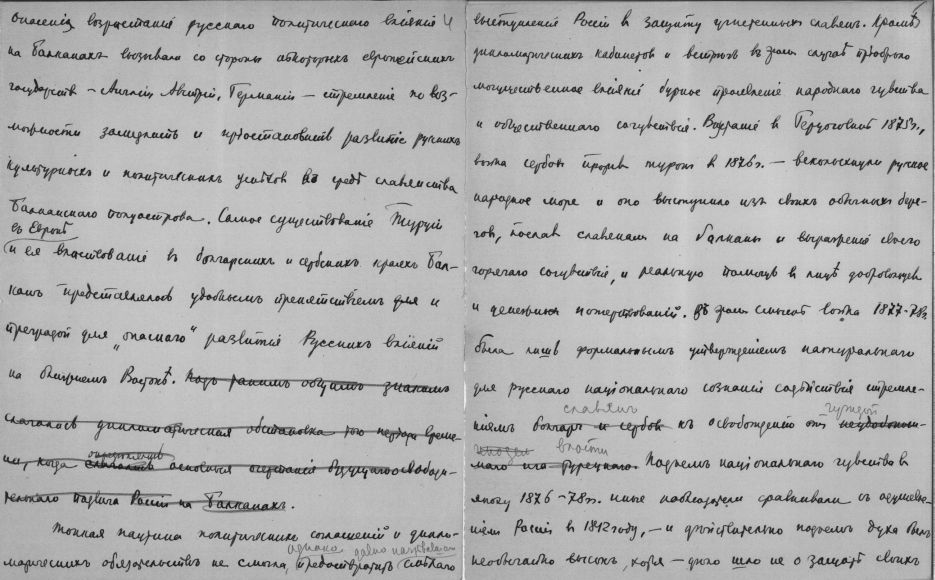 Опасенія возрастанія русскаго политическаго вліянія
на Балканахъ вызывало со стороны нѣкоторыхъ европейскихъ
государствъ – Англіи, Австріи, Германіи – стремленіе по воз-
можности замедлить и пріостановить развитіе русскихъ
культурныхъ и политическихъ успѣховъ въ средѣ славянства
Балканскаго полуострова. Самое существованіе Турціи
въ Европѣ
и ея властвованіе въ болгарскихъ и сербскихъ краяхъ Бал-
канъ представлялось удобнымъ препятствіемъ для и
преградой для „опаснаго" развитія Русскихъ вліяній
на ближнемъ Востокѣ. Подъ такимъ общимъ знакомъ
слагалась дипломатическая обстановка того періода време-
опредѣленіе
ни, когда основныя очертанія будущаго освободи-
тельнаго подвига Россіи на Балканахъ.
Тонкая паутина политическихъ соглашеній и дипло-
однако давно
матическихъ обязательствъ не смогла, предотвратить смѣлаго
выступленія Россіи въ защиту угнетенныхъ славянъ. Кромѣ
дипломатическихъ кабинетовъ и въ этомъ случаѣ
могущественное вліяніе бурное проявленіе народнаго чувства
и общественнаго сочувствія. Возстаніе въ Герцоговинѣ 1875г.,
война сербовъ противъ турокъ въ 1876г. – всколыхнули русское
народное море и оно выступило изъ своихъ обычныхъ бере-
говъ, пославъ славянамъ на Балканы и выраженіе своего
горячаго сочувствія, и реальную помощь въ лицѣ добровольцевъ
и денежныхъ пожертвованій. Въ этомъ смыслѣ война 1877-78г.
была лишь формальнымъ утвержденіемъ натуральнаго
для русскаго національнаго сознанія содѣйствія стремле-
славянъ чуждой
ніямъ болгаръ и сербовъ къ освобожденію отъ
власти
маго ига Турецкаго. Подъемъ національнаго чувства въ
эпоху 1876-78гг. иные наблюдатели сравнивали съ одушевле-
ніемъ Россіи въ 1812 году, – и дѣйствительно подъемъ духа былъ
необычайно высокъ, хотя – дѣло шло не о защитѣ своихъ